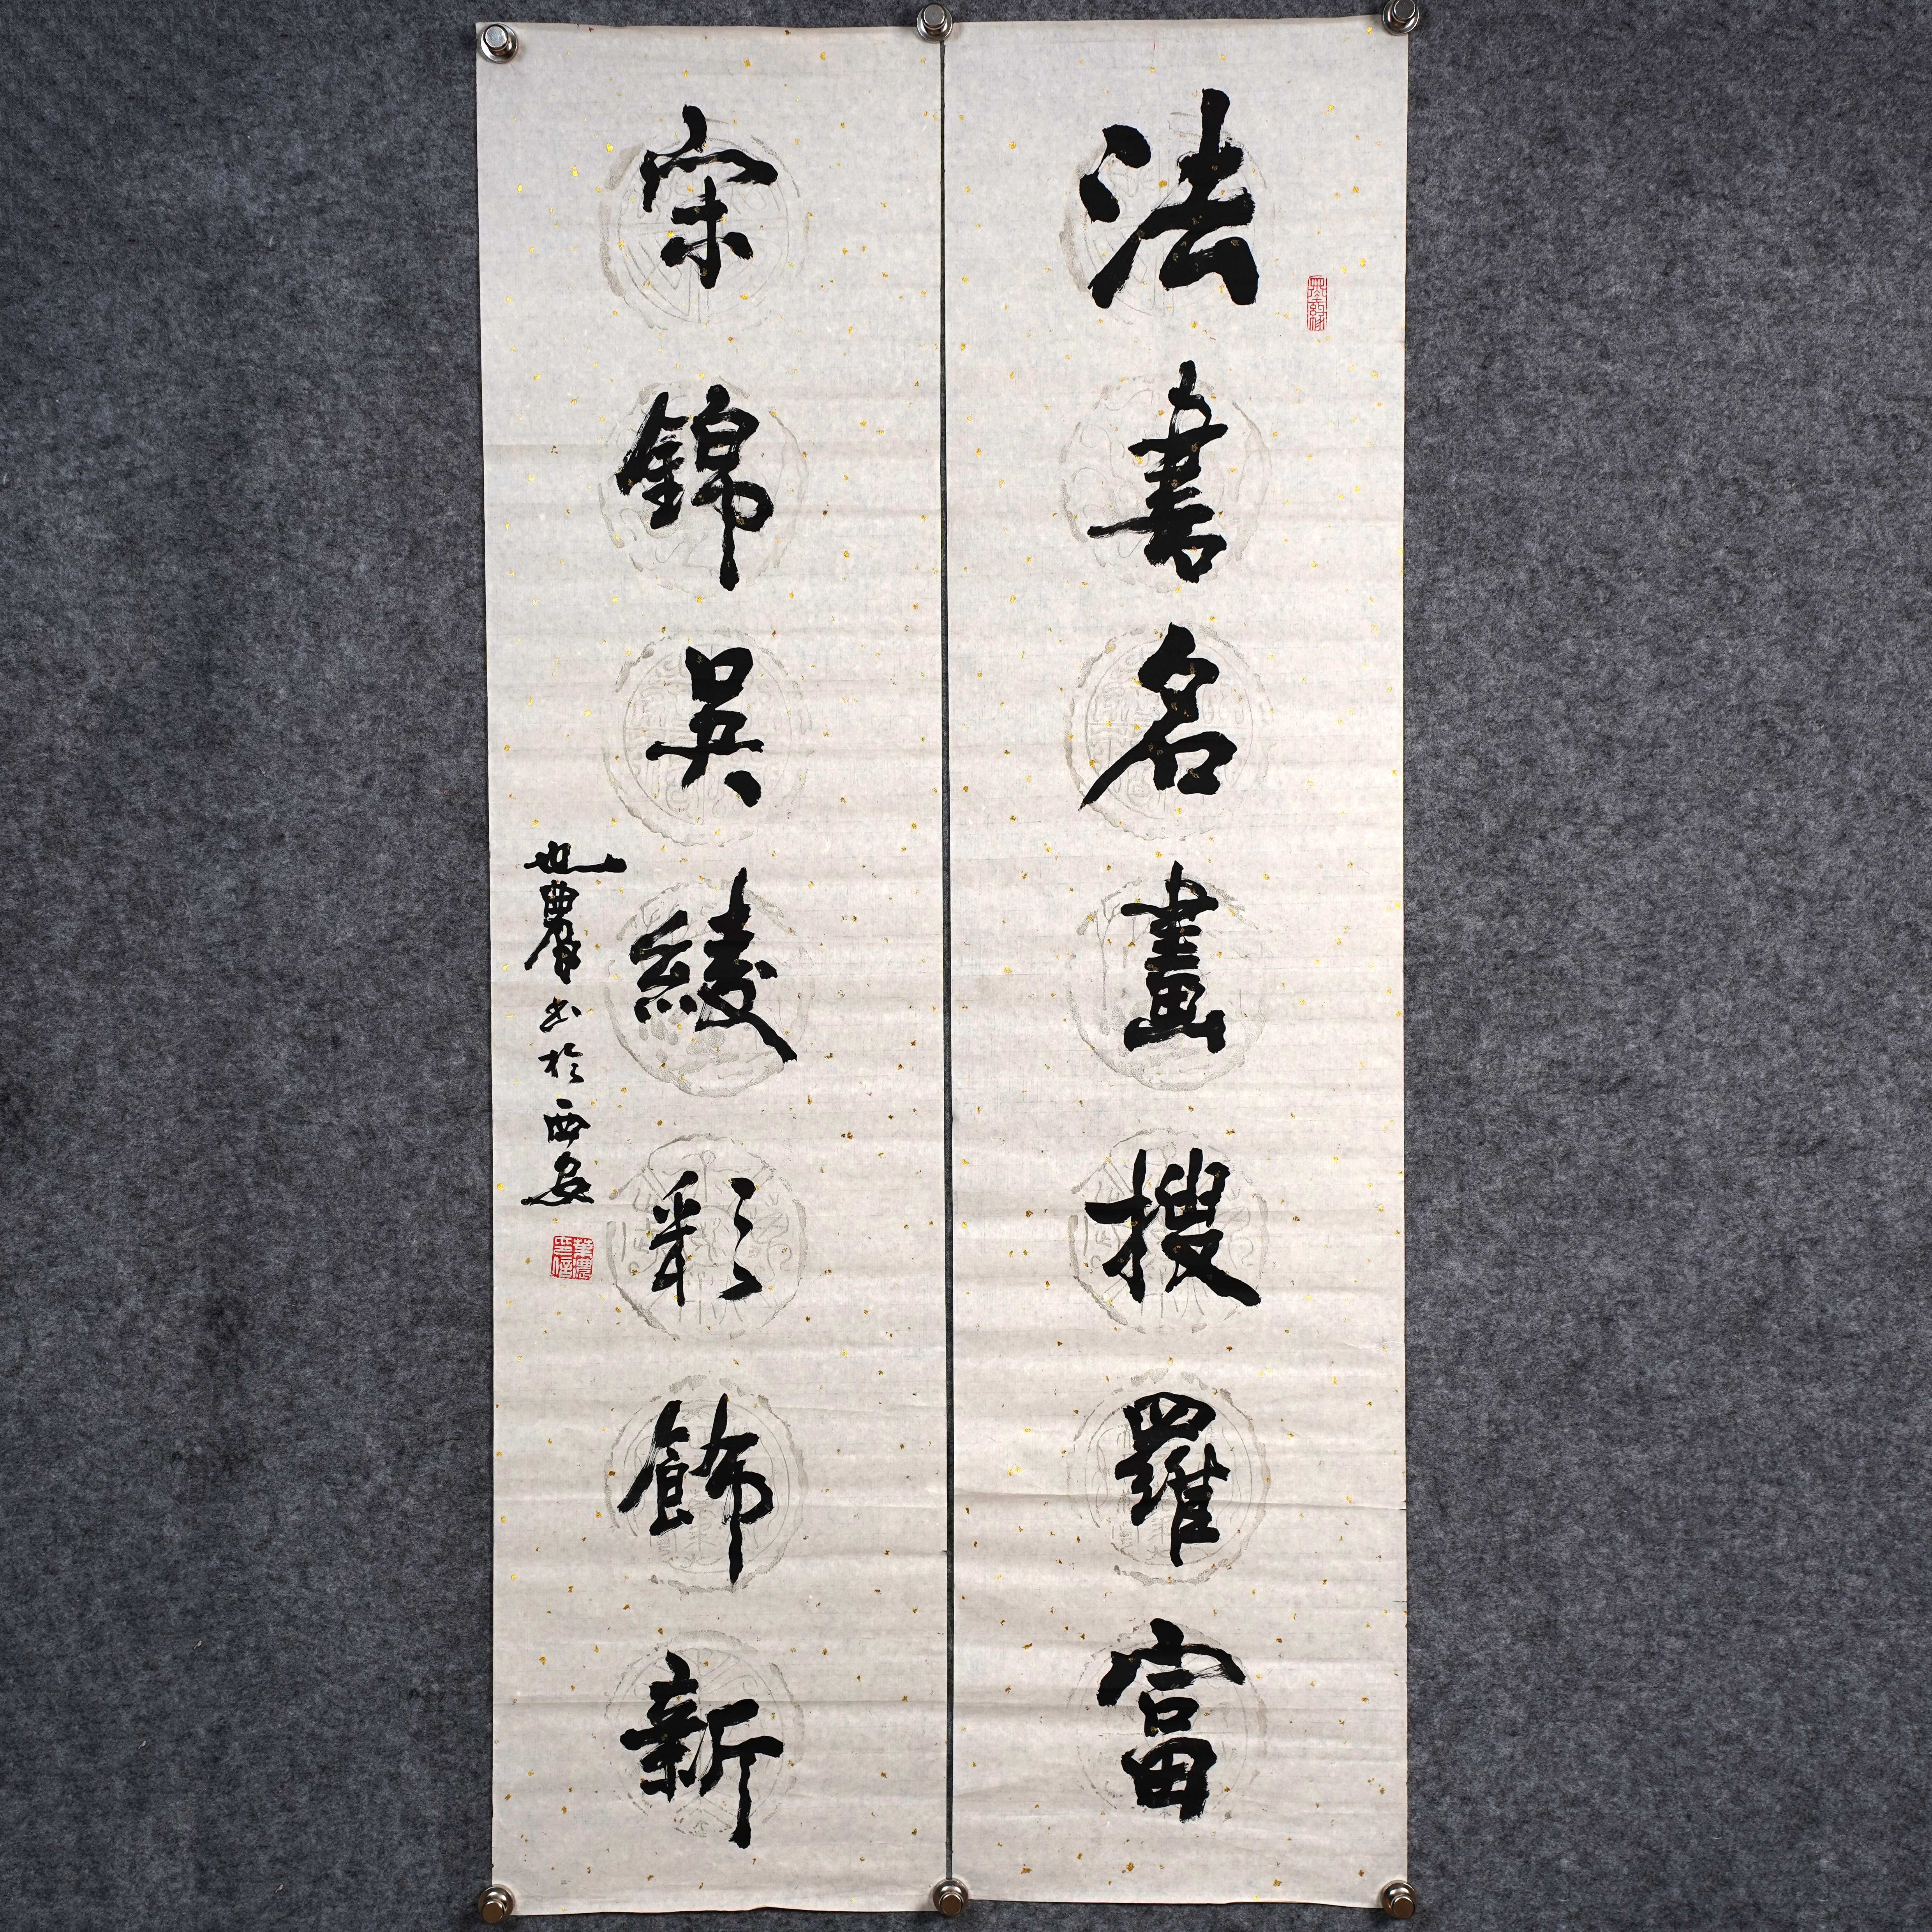 法書名畫搜羅富
宋錦吳綾彩飾新
世農書於西安